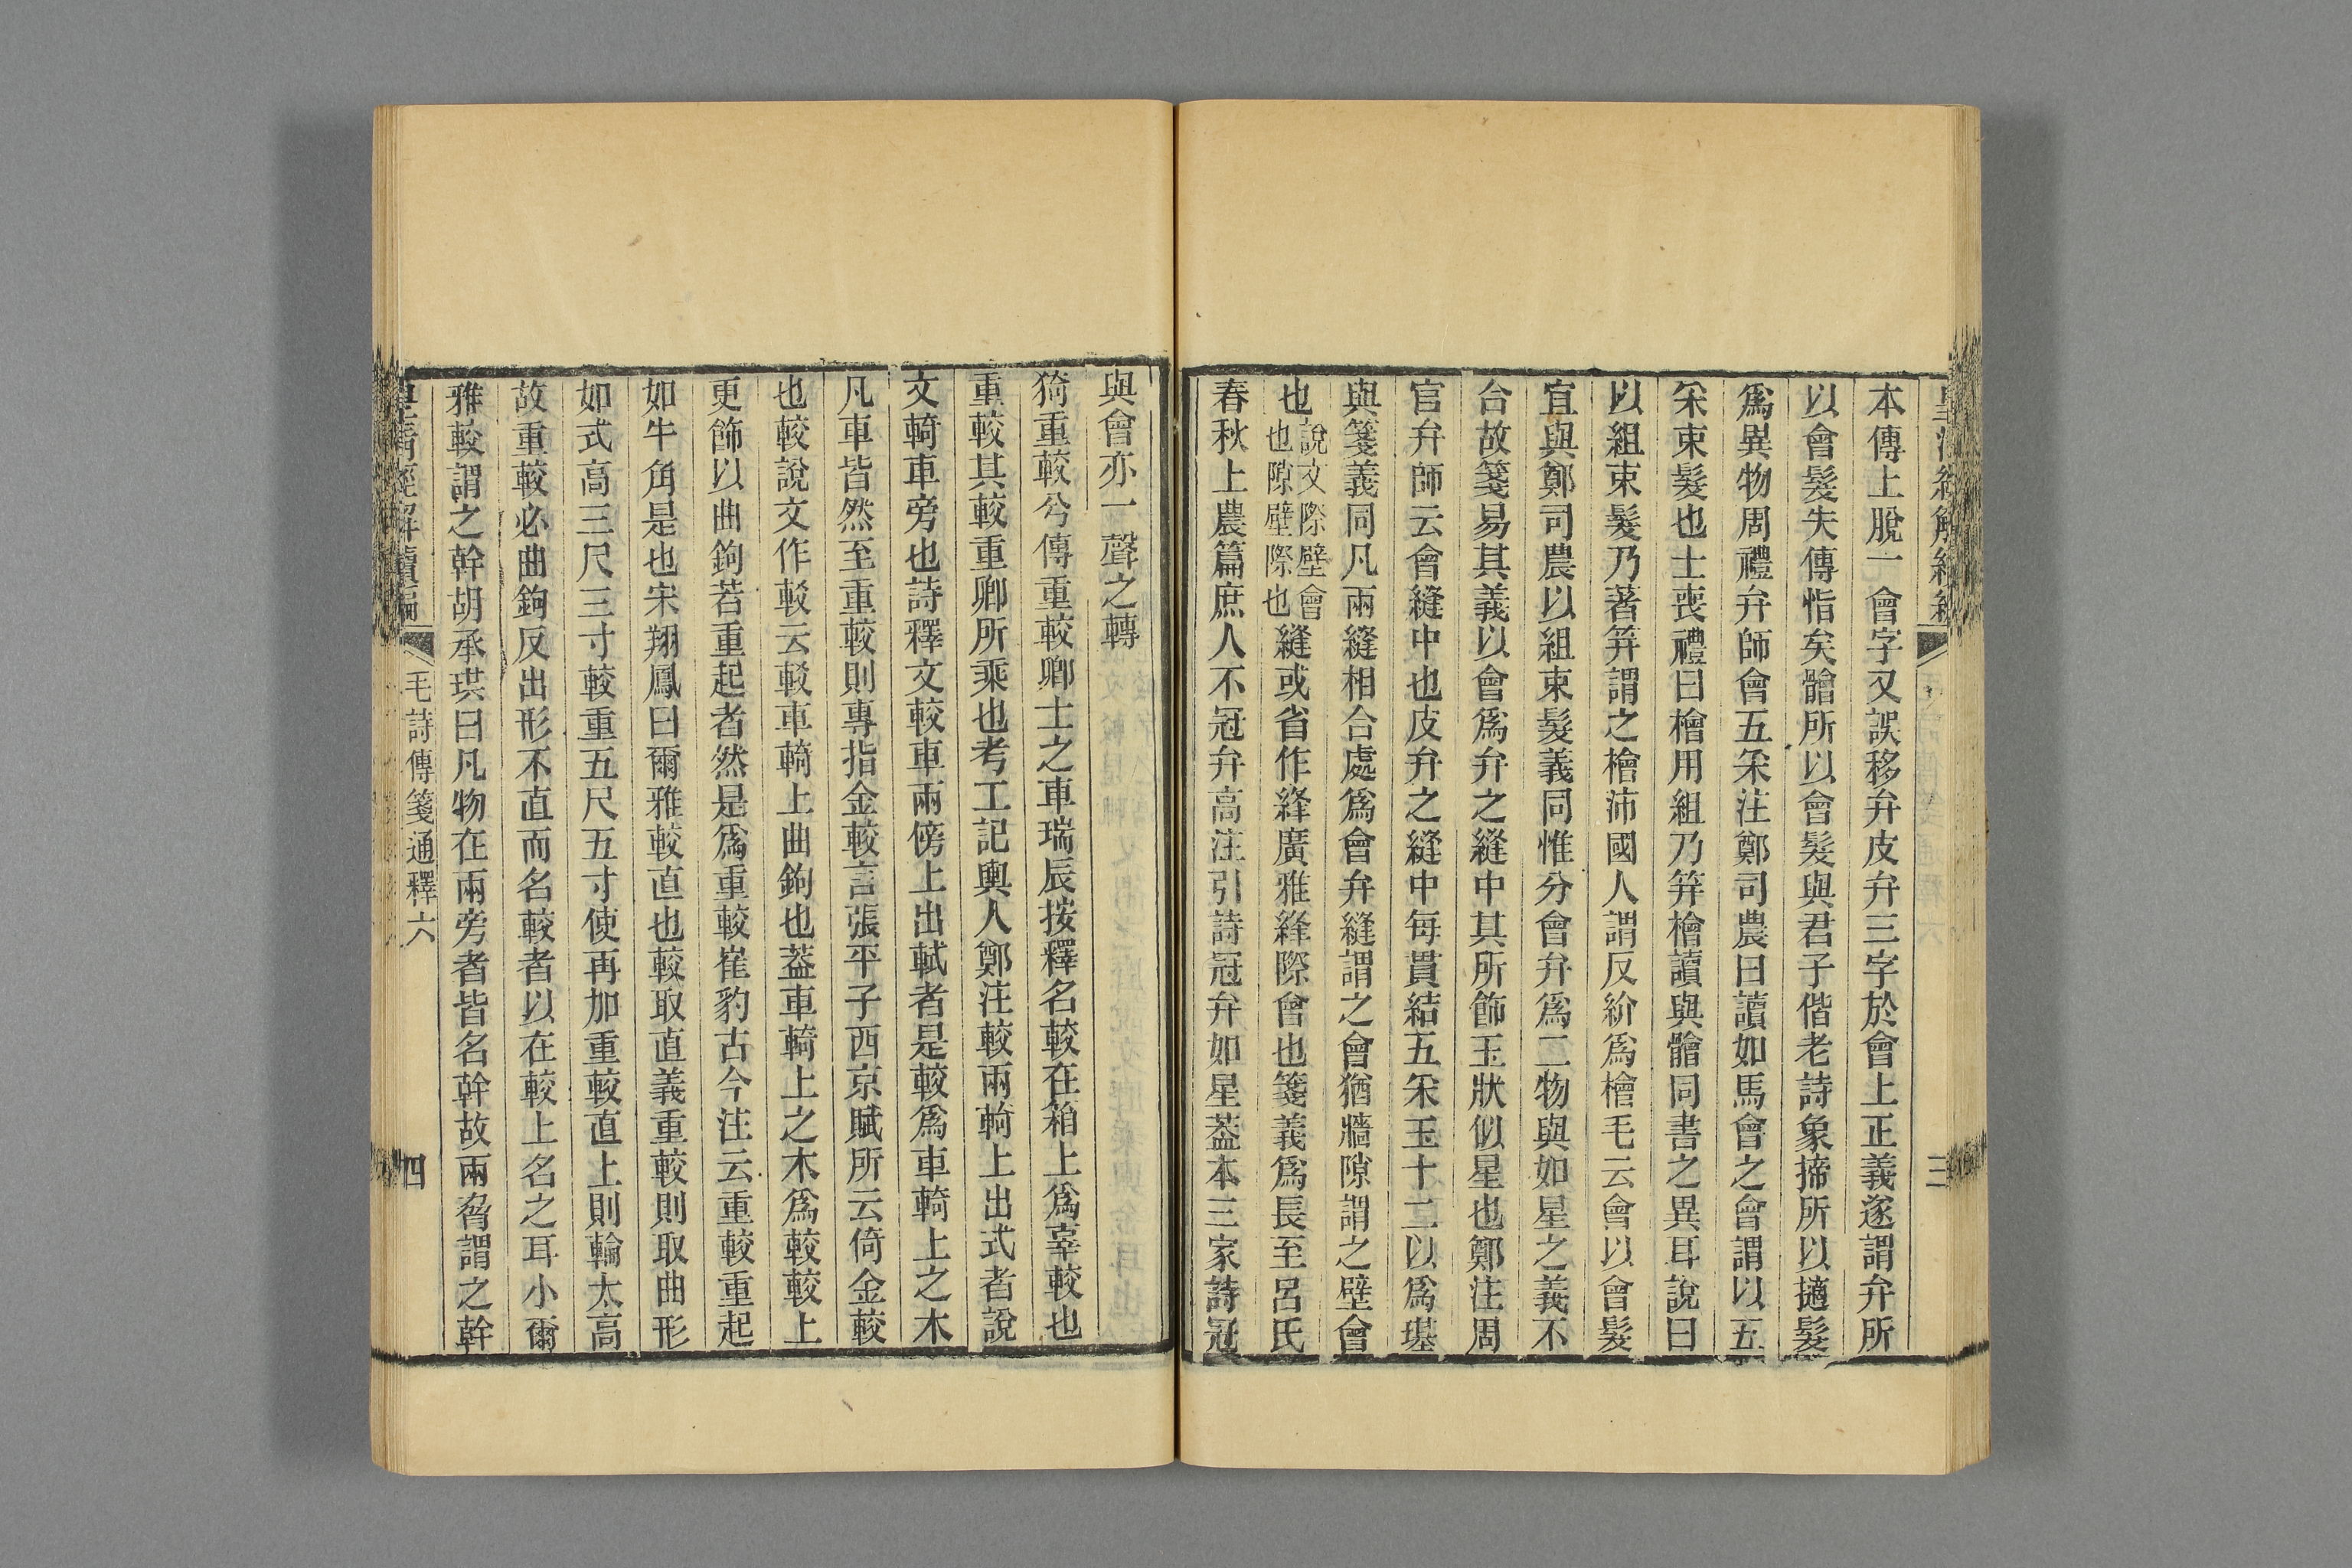 皇清經解續編
三
本傳上脫一會字又誤移弁皮弁三字於會上正義遂謂弁所
以會髮失傳恉矣䯤所以會髮與君子偕老詩象揥所以擿髮
爲異物周禮弁師會五采注鄭司農曰讀如馬會之會謂以五
采束髮也士喪禮曰檜用組乃笄檜讀與䯤同書之異耳說曰
以組束髮乃著笄謂之檜沛國人謂反紒爲檜毛云會以會髮
宜與鄭司農以組束髮義同惟分會弁爲二物與如星之義不
合故箋易其義以會爲弁之縫中其所飾玉狀似星也鄭注周
官弁師云會縫中也皮弁之縫中每貫結五采玉十二以爲璂
與箋義同凡兩縫相合處爲會弁縫謂之會猶牆隙謂之壁會
也說文際壁會也隙壁際也縫或省作綘廣雅綘際會也箋義爲長至呂氏
春秋上農篇庶人不冠弁高注引詩冠弁如星葢本三家詩冠
與會亦一聲之轉
猗重較兮傳重較卿士之車瑞辰按釋名較在箱上爲辜較也
重較其較重卿所乘也考工記輿人鄭注較兩輢上出式者說
文輢車旁也詩釋文較車兩傍上出軾者是較爲車輢上之木
凡車皆然至重較則專指金較言張平子西京賦所云倚金較
也較說文作䡈云䡈車輢上曲鉤也葢車輢上之木爲較較上
更飾以曲鉤若重起者然是爲重較崔豹古今注云重較重起
如牛角是也宋翔鳳曰爾雅較直也較取直義重較則取曲形
如式高三尺三寸較重五尺五寸使再加重較直上則輪太高
故重較必曲鉤反出形不直而名較者以在較上名之耳小爾
雅較謂之幹胡承珙曰凡物在兩旁者皆名幹故兩脅謂之幹
皇清經解續編
毛詩傳箋通釋六
四